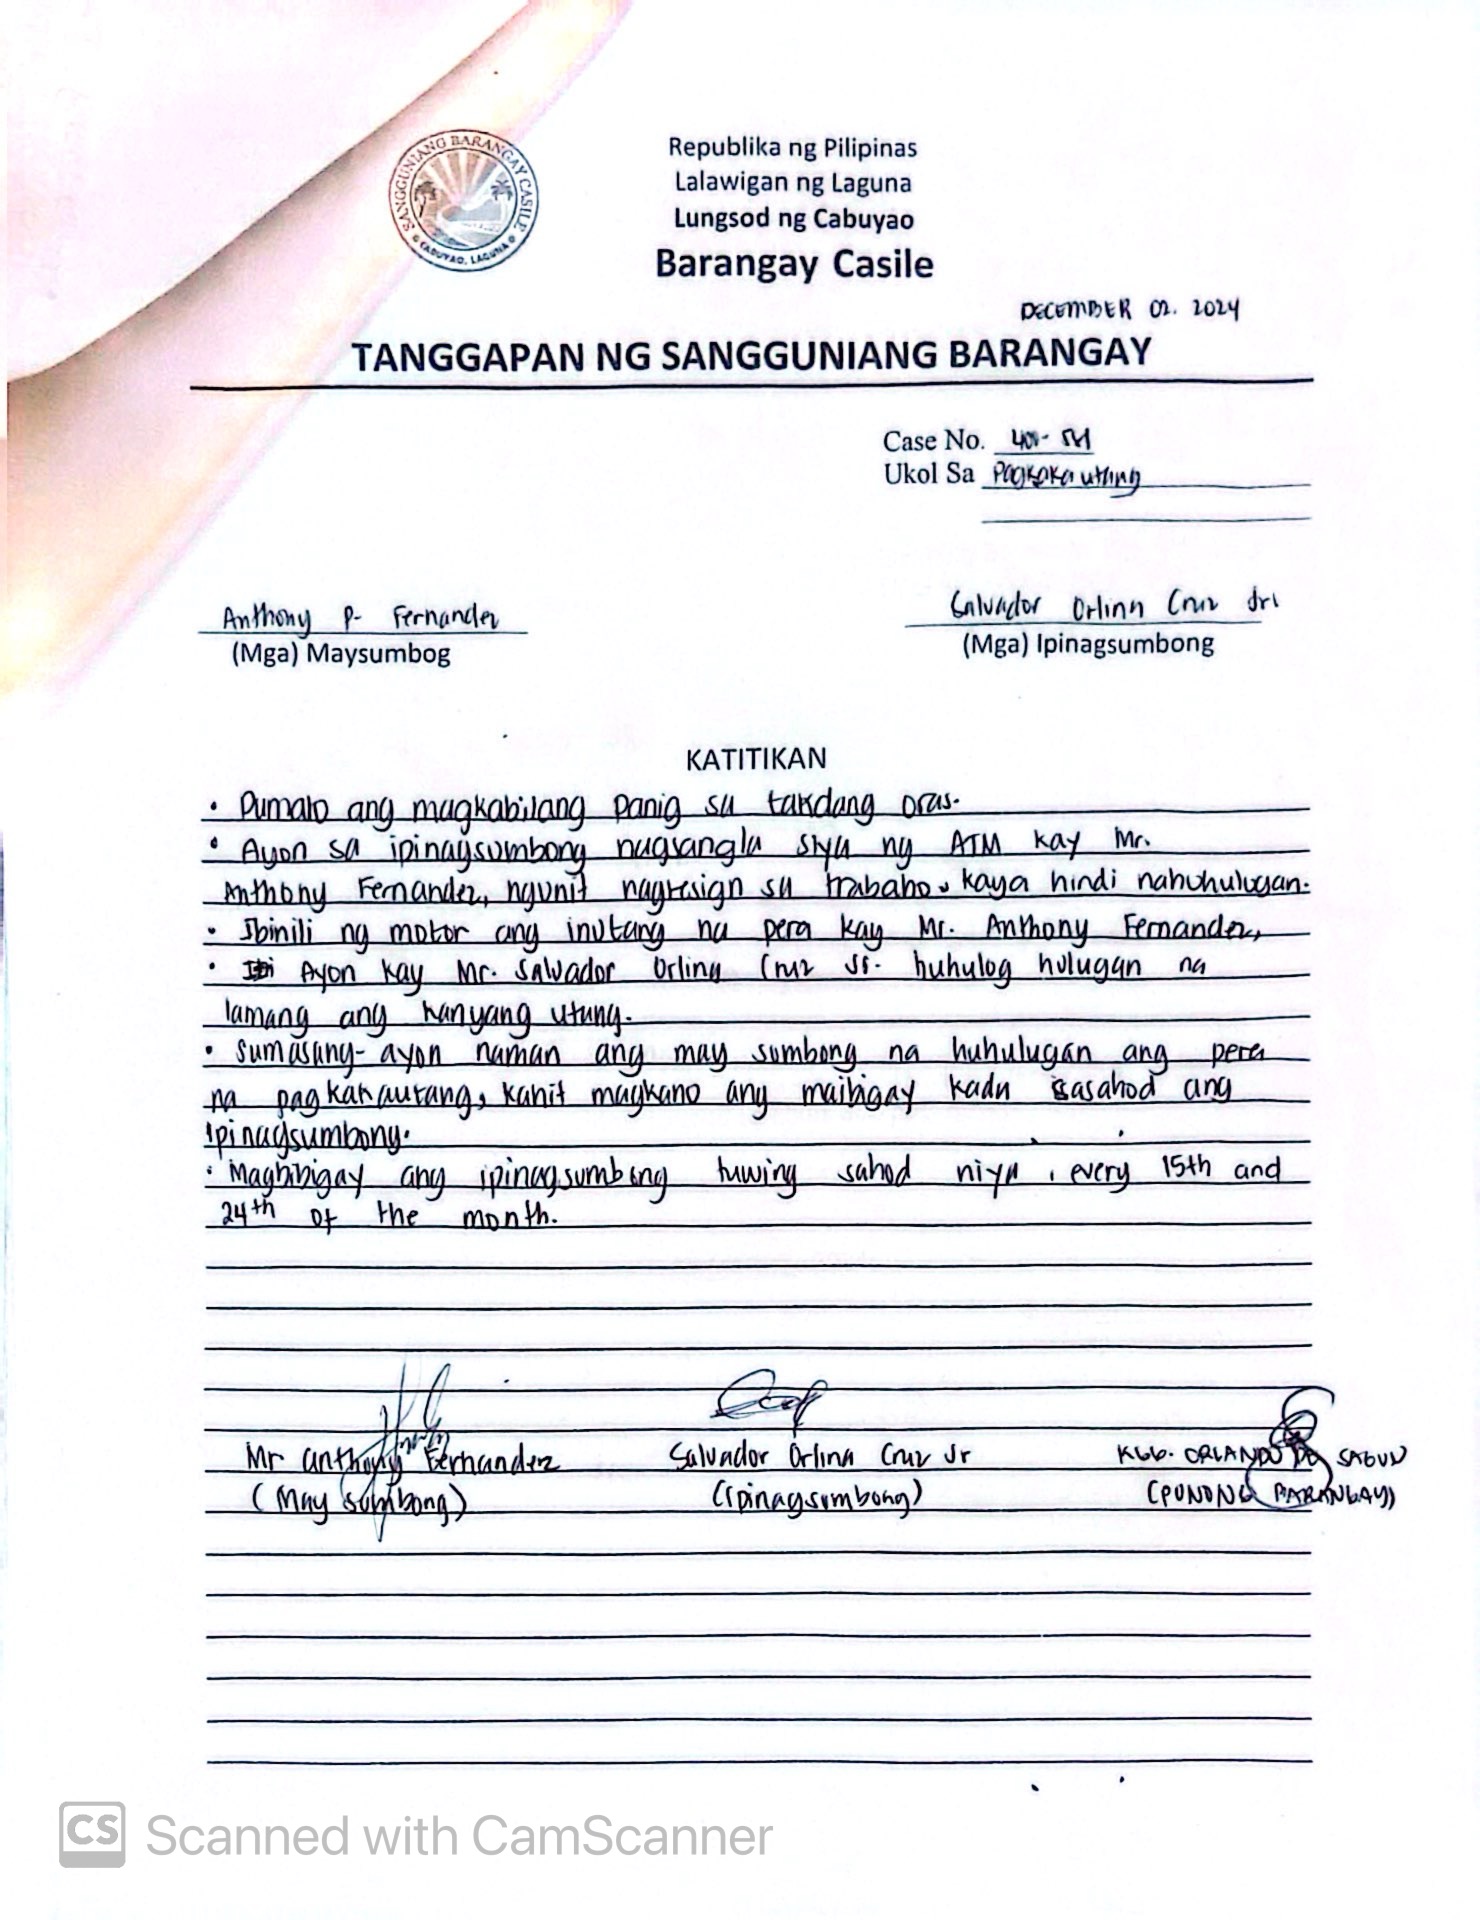 SANGGUNIANG BARANGAY CASILE
CABUYAO, LAGUNA
Republika ng Pilipinas
Lalawigan ng Laguna
Lungsod ng Cabuyao
Barangay Casile
DECEMBER 02. 2024
TANGGAPAN NG SANGGUNIANG BARANGAY
Case No.
Ukol Sa Pagkakautang
Anthony P. Fernandez
(Mga) Maysumbog
Salvador Orlina Cruz Jr.
(Mga) Ipinagsumbong
KATITIKAN
• Dumalo ang magkabilang panig sa takdang oras.
• Ayon sa ipinagsumbong nagsangla siya ng ATM kay Mr.
Anthony Fernandez, ngunit nagresign sa trabaho, kaya hindi nahuhulugan.
• Ibinili ng motor ang inutang na pera kay Mr. Anthony Fernandez,
• Ayon kay Mr. Salvador Orlina Cruz Jr. huhulog hulugan na
lamang ang kanyang utang.
• Sumasang-ayon naman ang may sumbong na huhulugan ang pera
na pagkakautang, kahit magkano ang maibigay kada sasahod ang
ipinagsumbong.
• Magbibigay ang ipinagsumbong tuwing sahod niya, every 15th and
24th of the month.
Mr Anthony Fernandez
(May sumbong)
Salvador Orlina Cruz Jr
(Ipinagsumbong)
KGG. ORLANDO SAGUN
(PUNONG BARANGAY)
CS Scanned with CamScanner